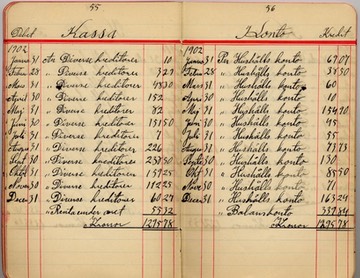 55
Debet Kassa
1902
Janu 31 An Diverse kreditorer 10
Febru 28 " Diverse kreditorer
Mars 31 " Diverse kreditorer 48 30
April 30 " Diverse kreditorer 152
Maj 31 " Diverse kreditorer 82
Juni 30 " Diverse kreditorer 151 50
Juli 31 " Diverse kreditorer 7
Augu 31 " Diverse kreditorer 226
Sept 30 " Diverse kreditorer
Okto 31 " Diverse kreditorer
Nove 30 " Diverse kreditorer 112 25
Dece 31 " Diverse kreditorer 60 27
" Ränta under året 55 32
Kronor 1295 78
56
Konto Kredit
1902
Janu 31 Per Hushålls konto 69 07
Febru 28 " Hushålls konto 38 30
Mars 31 " Hushålls konto 60
April 30 " Hushålls konto 10
Maj 31 " Hushålls konto 134 70
Juni 30 " Hushålls konto 45
Juli 31 " Hushålls konto 35
Augu 31 " Hushålls konto 73 73
Septe 30 " Hushålls konto 130
Okto 31 " Hushålls konto 85 50
Nove 30 " Hushålls konto 71
Dece 31 " Hushålls konto 163 24
" Balanskonto
Kronor 1295 78